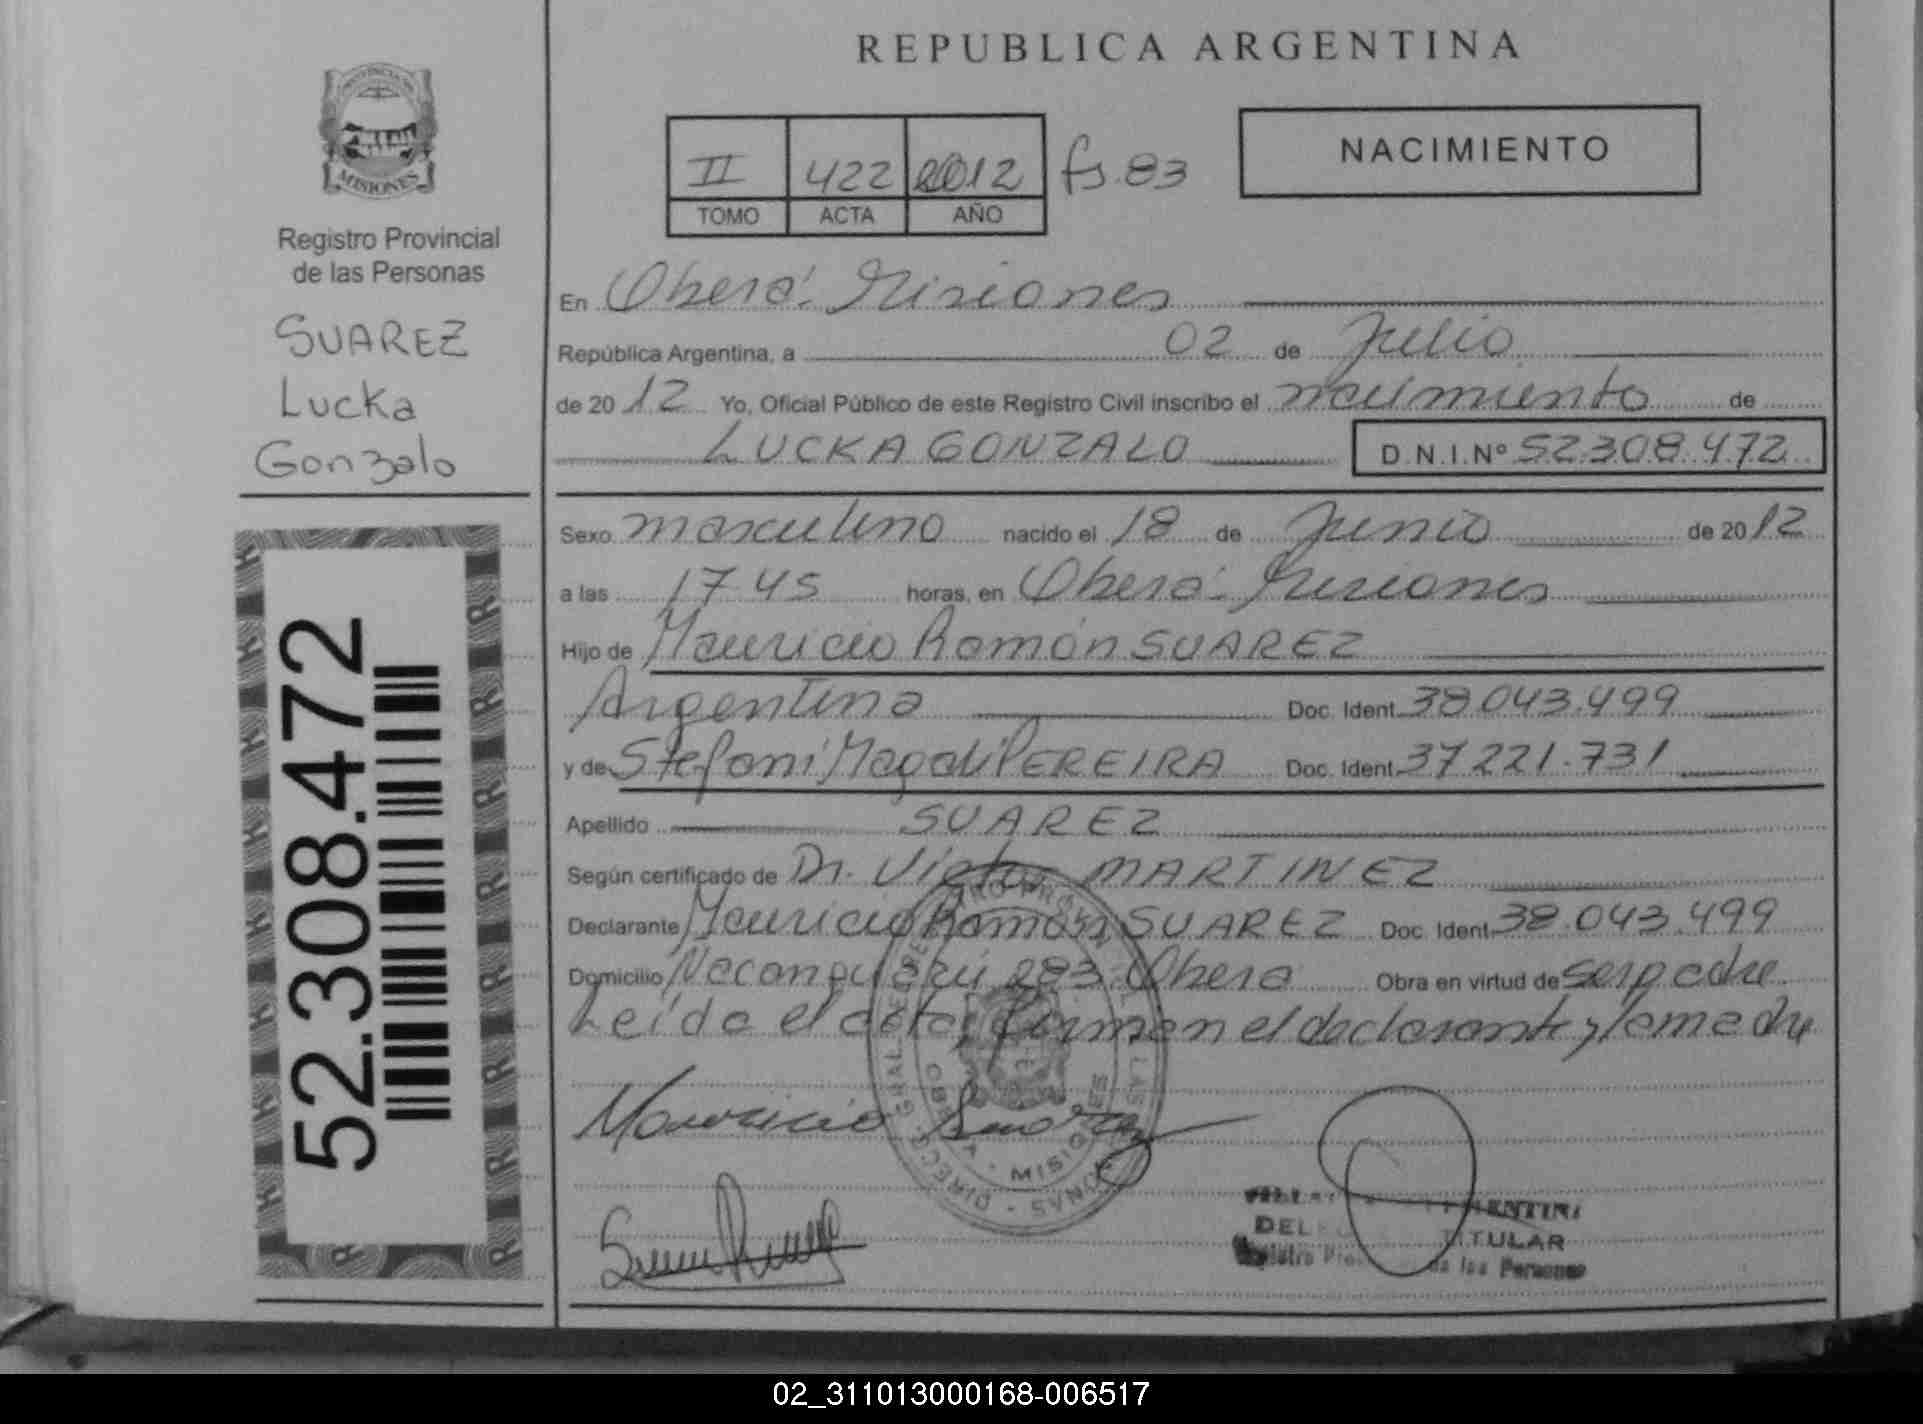 REPUBLICA ARGENTINA
PROVINCIA DE
MISIONES
Registro Provincial
de las Personas
SUAREZ
Lucka
Gonzalo
52.308.472
II 422 2012 fs. 83
TOMO ACTA AÑO
NACIMIENTO
En Oberá. Misiones
República Argentina, a 02 de Julio
de 2012 Yo, Oficial Público de este Registro Civil inscribo el nacimiento de
LUCKA GONZALO D.N.I.Nº 52.308.472
Sexo masculino nacido el 18 de Junio de 2012
a las 17 45 horas, en Oberá. Misiones
Hijo de Mauricio Ramón SUAREZ
Argentina Doc. Ident. 38.043.499
y de Stefani Magali PEREIRA Doc. Ident. 37.221.731
Apellido SUAREZ
Según certificado de Dr. Victor MARTINEZ
Declarante Mauricio Ramón SUAREZ Doc. Ident. 38.043.499
Domicilio 283. Oberá Obra en virtud de ser padre
Leída el acta, firman el declarante y la madre
Mauricio Suarez
OBERA - MISIONES
DEL TITULAR
de las Personas
02_311013000168-006517